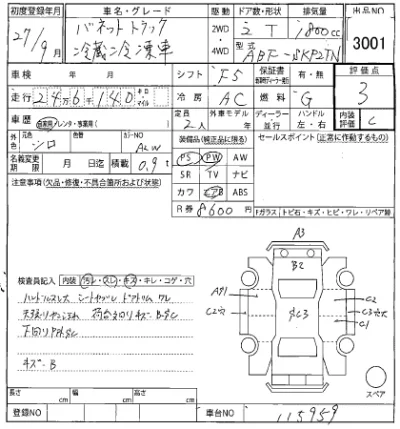 初度登録年月 車名・グレード 駆動 ドア数・形状 排気量 出品NO
27/9月 バネットトラック 2WD 2 T 1800cc
冷蔵冷凍車 4WD 型式 ABF-SKP2TN 3001
車検 年 月 シフト F5 保証書 有・無 評価点
走行 24万6千140 キロ マイル 冷房 AC 燃料 G 3
車歴 自家用・レンタ・事業用 定員 2人 外車モデル 年 ディーラー 並行 ハンドル 左・右 内装評価 C
外色 元色 シロ 色替 カラーNO 装備品(純正品に限る) セールスポイント(正常に作動するもの)
名義変更期限 月 日迄 積載 0.9t PS PW AW
注意事項(欠品・修復・不具合箇所および状態) SR TV ナビ
カワ エアB ABS
R券 8600円
Fガラス トビ石・キズ・ヒビ・ワレ・リペア跡
A3
B2
検査員記入 内装 汚レ・スレ・キズ・キレ・コゲ・穴
ハンドルスレ大 シートヤブレ ドアトリム ワレ
下回りサビ
キズ-B
C2
C2穴
C3
C1
スペア
長さ cm 幅 cm 高さ cm
登録NO 車台NO 115959